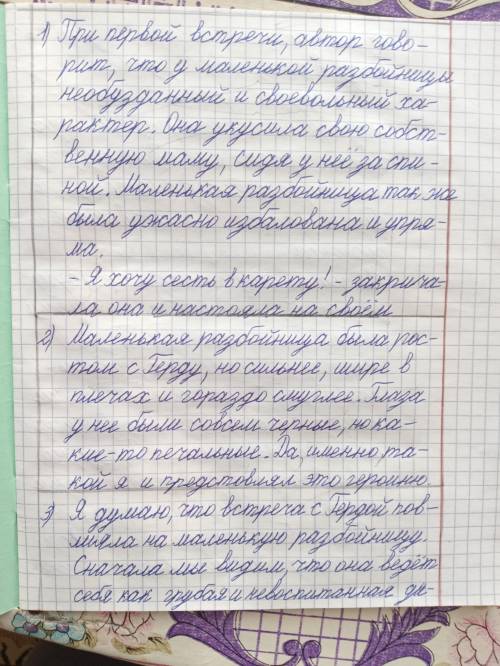 1) При первой встречи, автор гово-
рит, что у маленькой разбойницы
необузданный и своевольный ха-
рактер. Она укусила свою собст-
венную маму, сидя у неё за спи-
ной. Маленькая разбойница так же
была ужасно избалована и упря-
ма.
- Я хочу сесть в карету! - закрича-
ла она и настояла на своём
2) Маленькая разбойница была рос-
том с Герду, но сильнее, шире в
плечах и гораздо смуглее. Глаза
у нее были совсем черные, но ка-
кие-то печальные. Да, именно, та-
кой я и предстовлял это героиню.
3) Я думаю, что встреча с Гердой пов-
лияла на маленькую разбойницу.
Сначала мы видим, что она ведёт
себя как грубая и невоспитанная де-